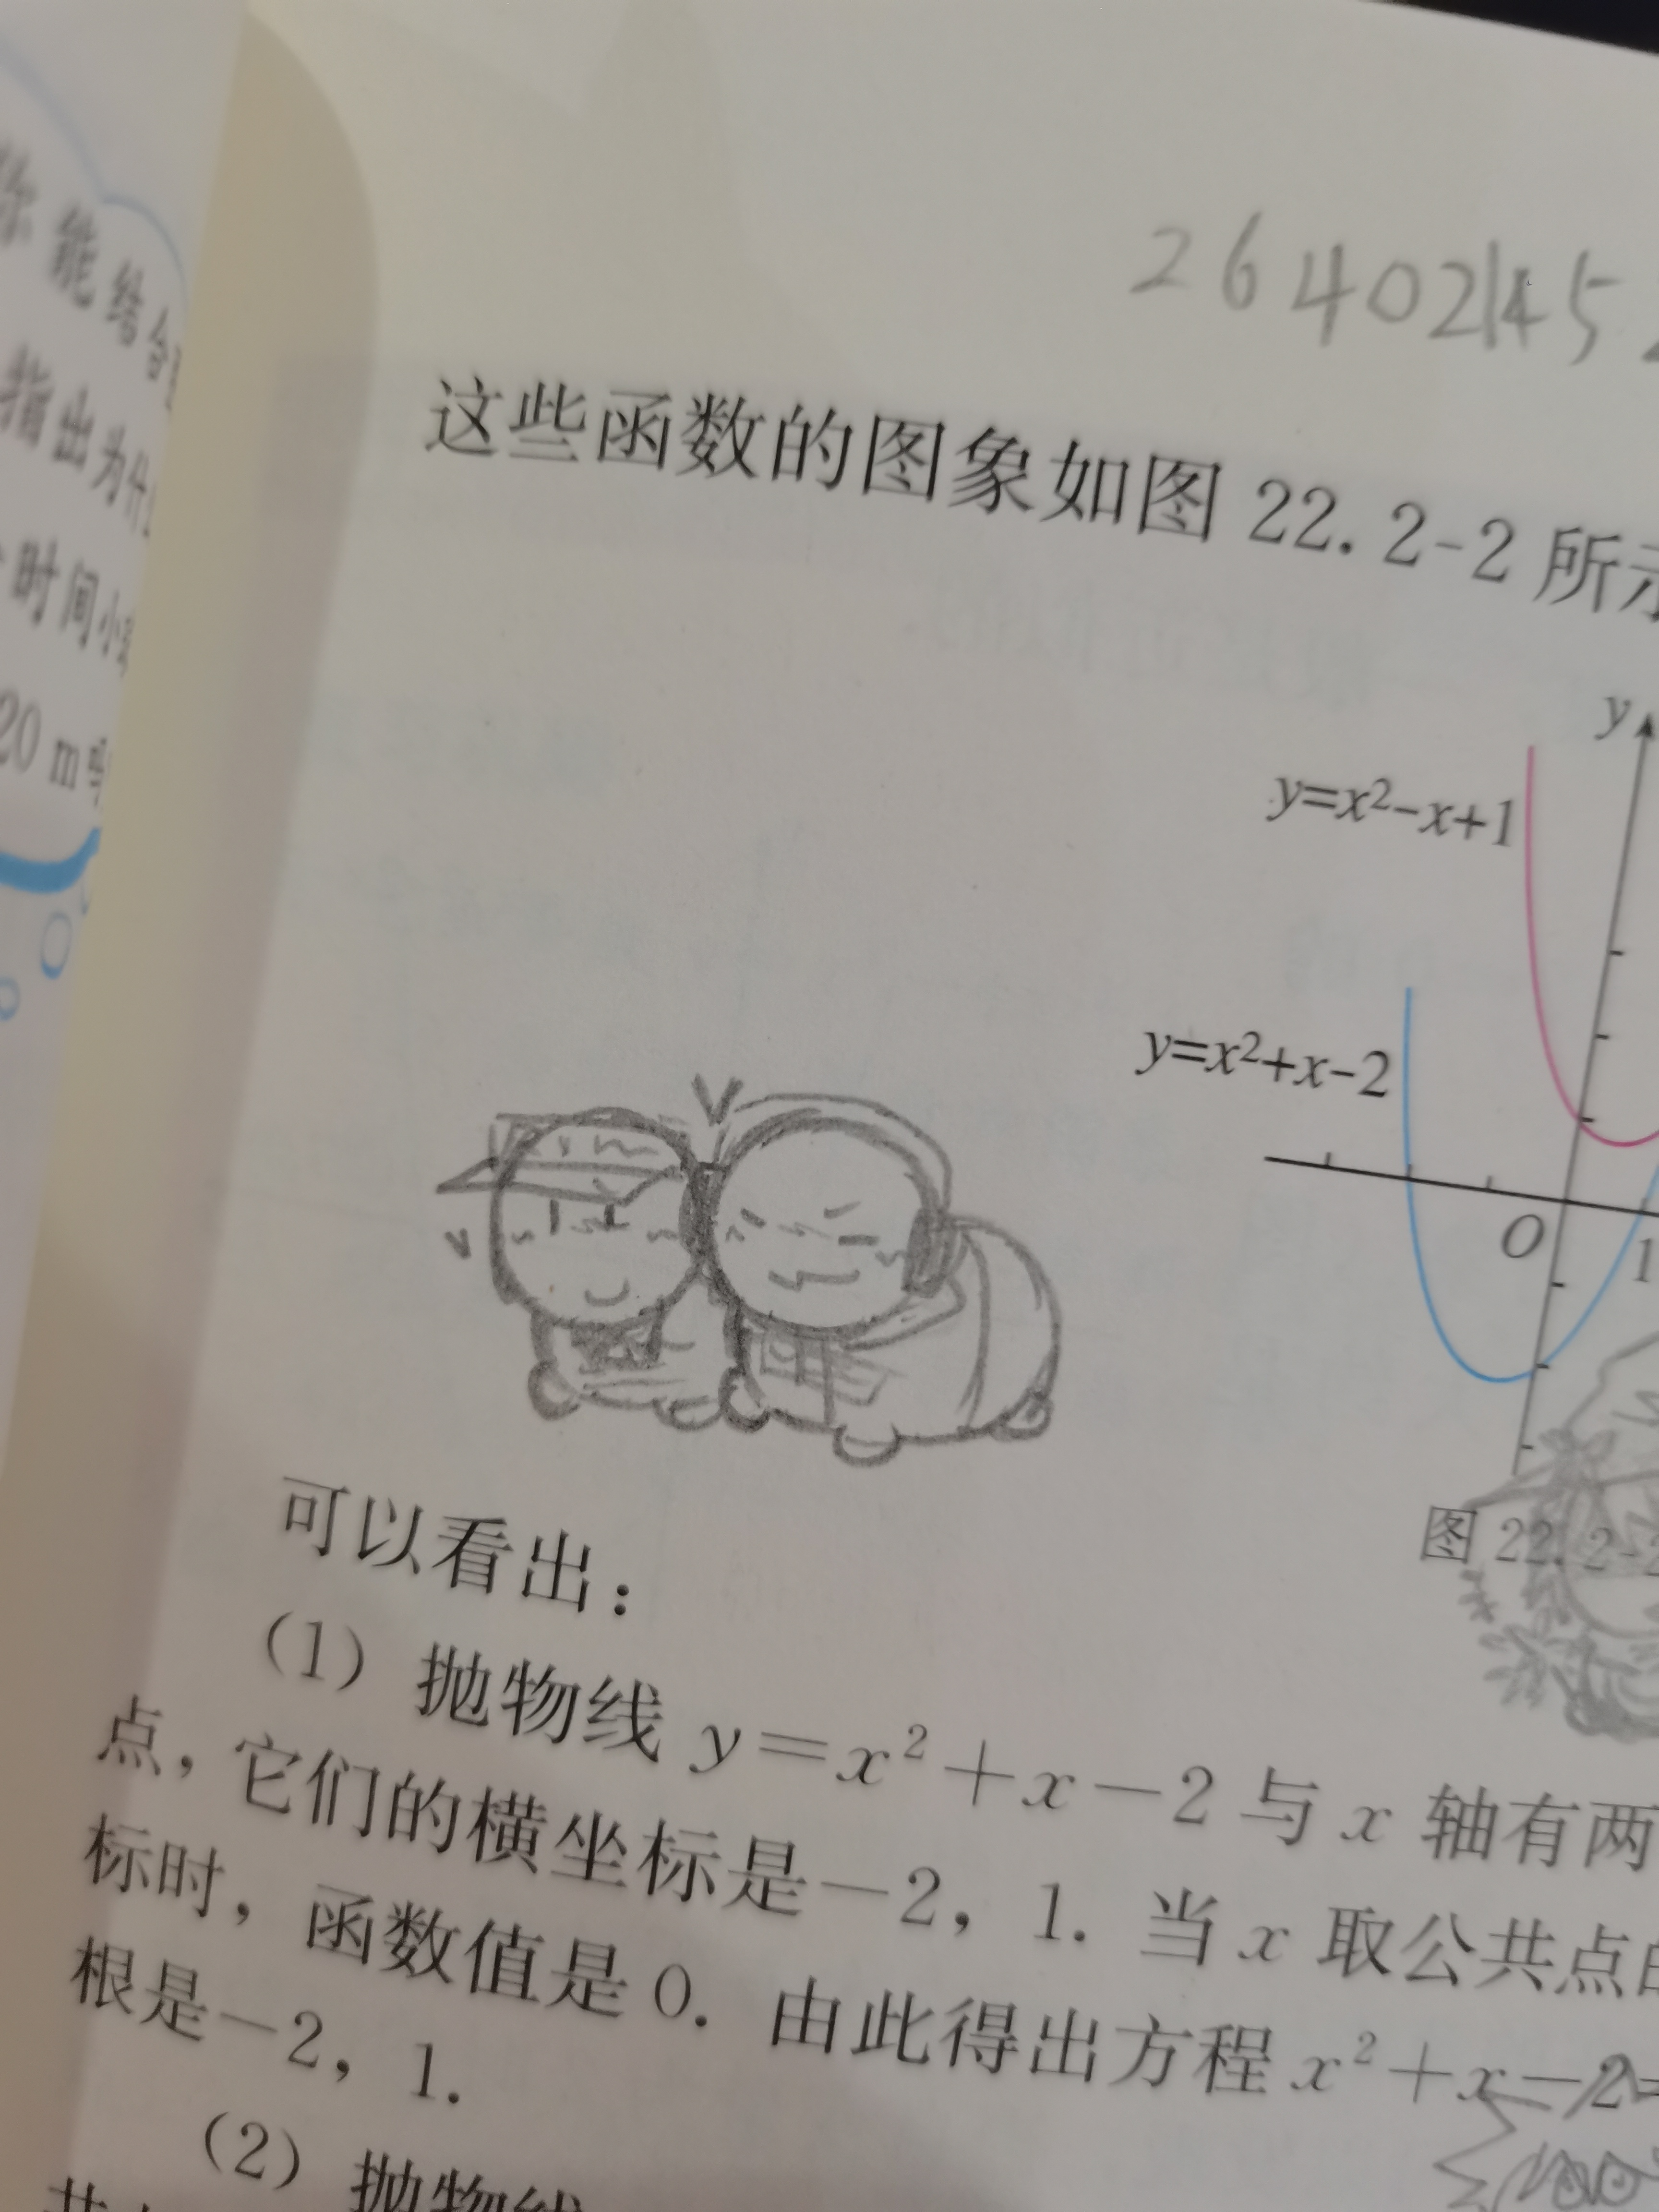 你能结合
指出为什
时间小
20 m
26402145
这些函数的图象如图 22.2-2 所示
y
y=x²-x+1
y=x²+x-2
O
1
图 22.2-2
可以看出：
（1）抛物线 y＝x²＋x－2 与 x 轴有两
点，它们的横坐标是－2，1. 当 x 取公共点的
标时，函数值是 0. 由此得出方程 x²＋x－2＝
根是－2，1.
（2）抛物线